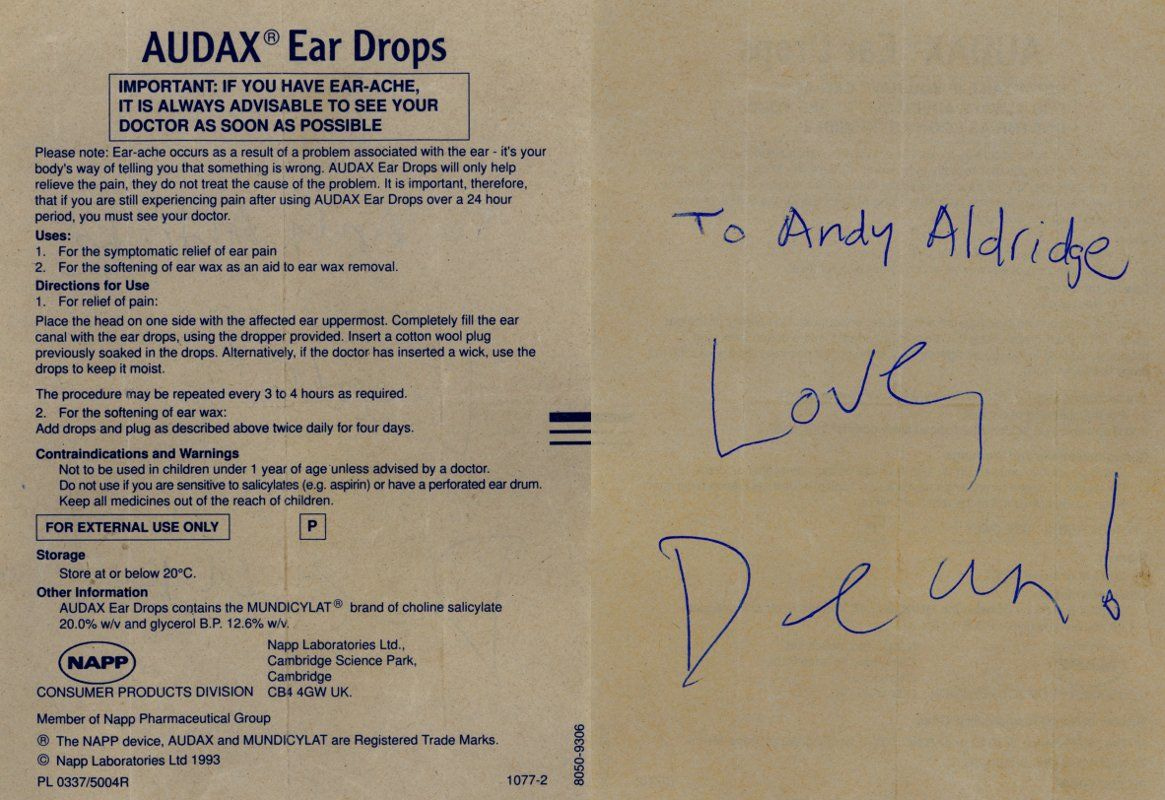 AUDAX® Ear Drops
IMPORTANT: IF YOU HAVE EAR-ACHE,
IT IS ALWAYS ADVISABLE TO SEE YOUR
DOCTOR AS SOON AS POSSIBLE
Please note: Ear-ache occurs as a result of a problem associated with the ear - it's your
body's way of telling you that something is wrong. AUDAX Ear Drops will only help
relieve the pain, they do not treat the cause of the problem. It is important, therefore,
that if you are still experiencing pain after using AUDAX Ear Drops over a 24 hour
period, you must see your doctor.
Uses:
1. For the symptomatic relief of ear pain
2. For the softening of ear wax as an aid to ear wax removal.
Directions for Use
1. For relief of pain:
Place the head on one side with the affected ear uppermost. Completely fill the ear
canal with the ear drops, using the dropper provided. Insert a cotton wool plug
previously soaked in the drops. Alternatively, if the doctor has inserted a wick, use the
drops to keep it moist.
The procedure may be repeated every 3 to 4 hours as required.
2. For the softening of ear wax:
Add drops and plug as described above twice daily for four days.
Contraindications and Warnings
Not to be used in children under 1 year of age unless advised by a doctor.
Do not use if you are sensitive to salicylates (e.g. aspirin) or have a perforated ear drum.
Keep all medicines out of the reach of children.
FOR EXTERNAL USE ONLY P
Storage
Store at or below 20°C.
Other Information
AUDAX Ear Drops contains the MUNDICYLAT® brand of choline salicylate
20.0% w/v and glycerol B.P. 12.6% w/v.
NAPP
CONSUMER PRODUCTS DIVISION
Napp Laboratories Ltd.,
Cambridge Science Park,
Cambridge
CB4 4GW UK.
Member of Napp Pharmaceutical Group
® The NAPP device, AUDAX and MUNDICYLAT are Registered Trade Marks.
© Napp Laboratories Ltd 1993
PL 0337/5004R 1077-2
8050-9306
To Andy Aldridge
Love,
Dean!